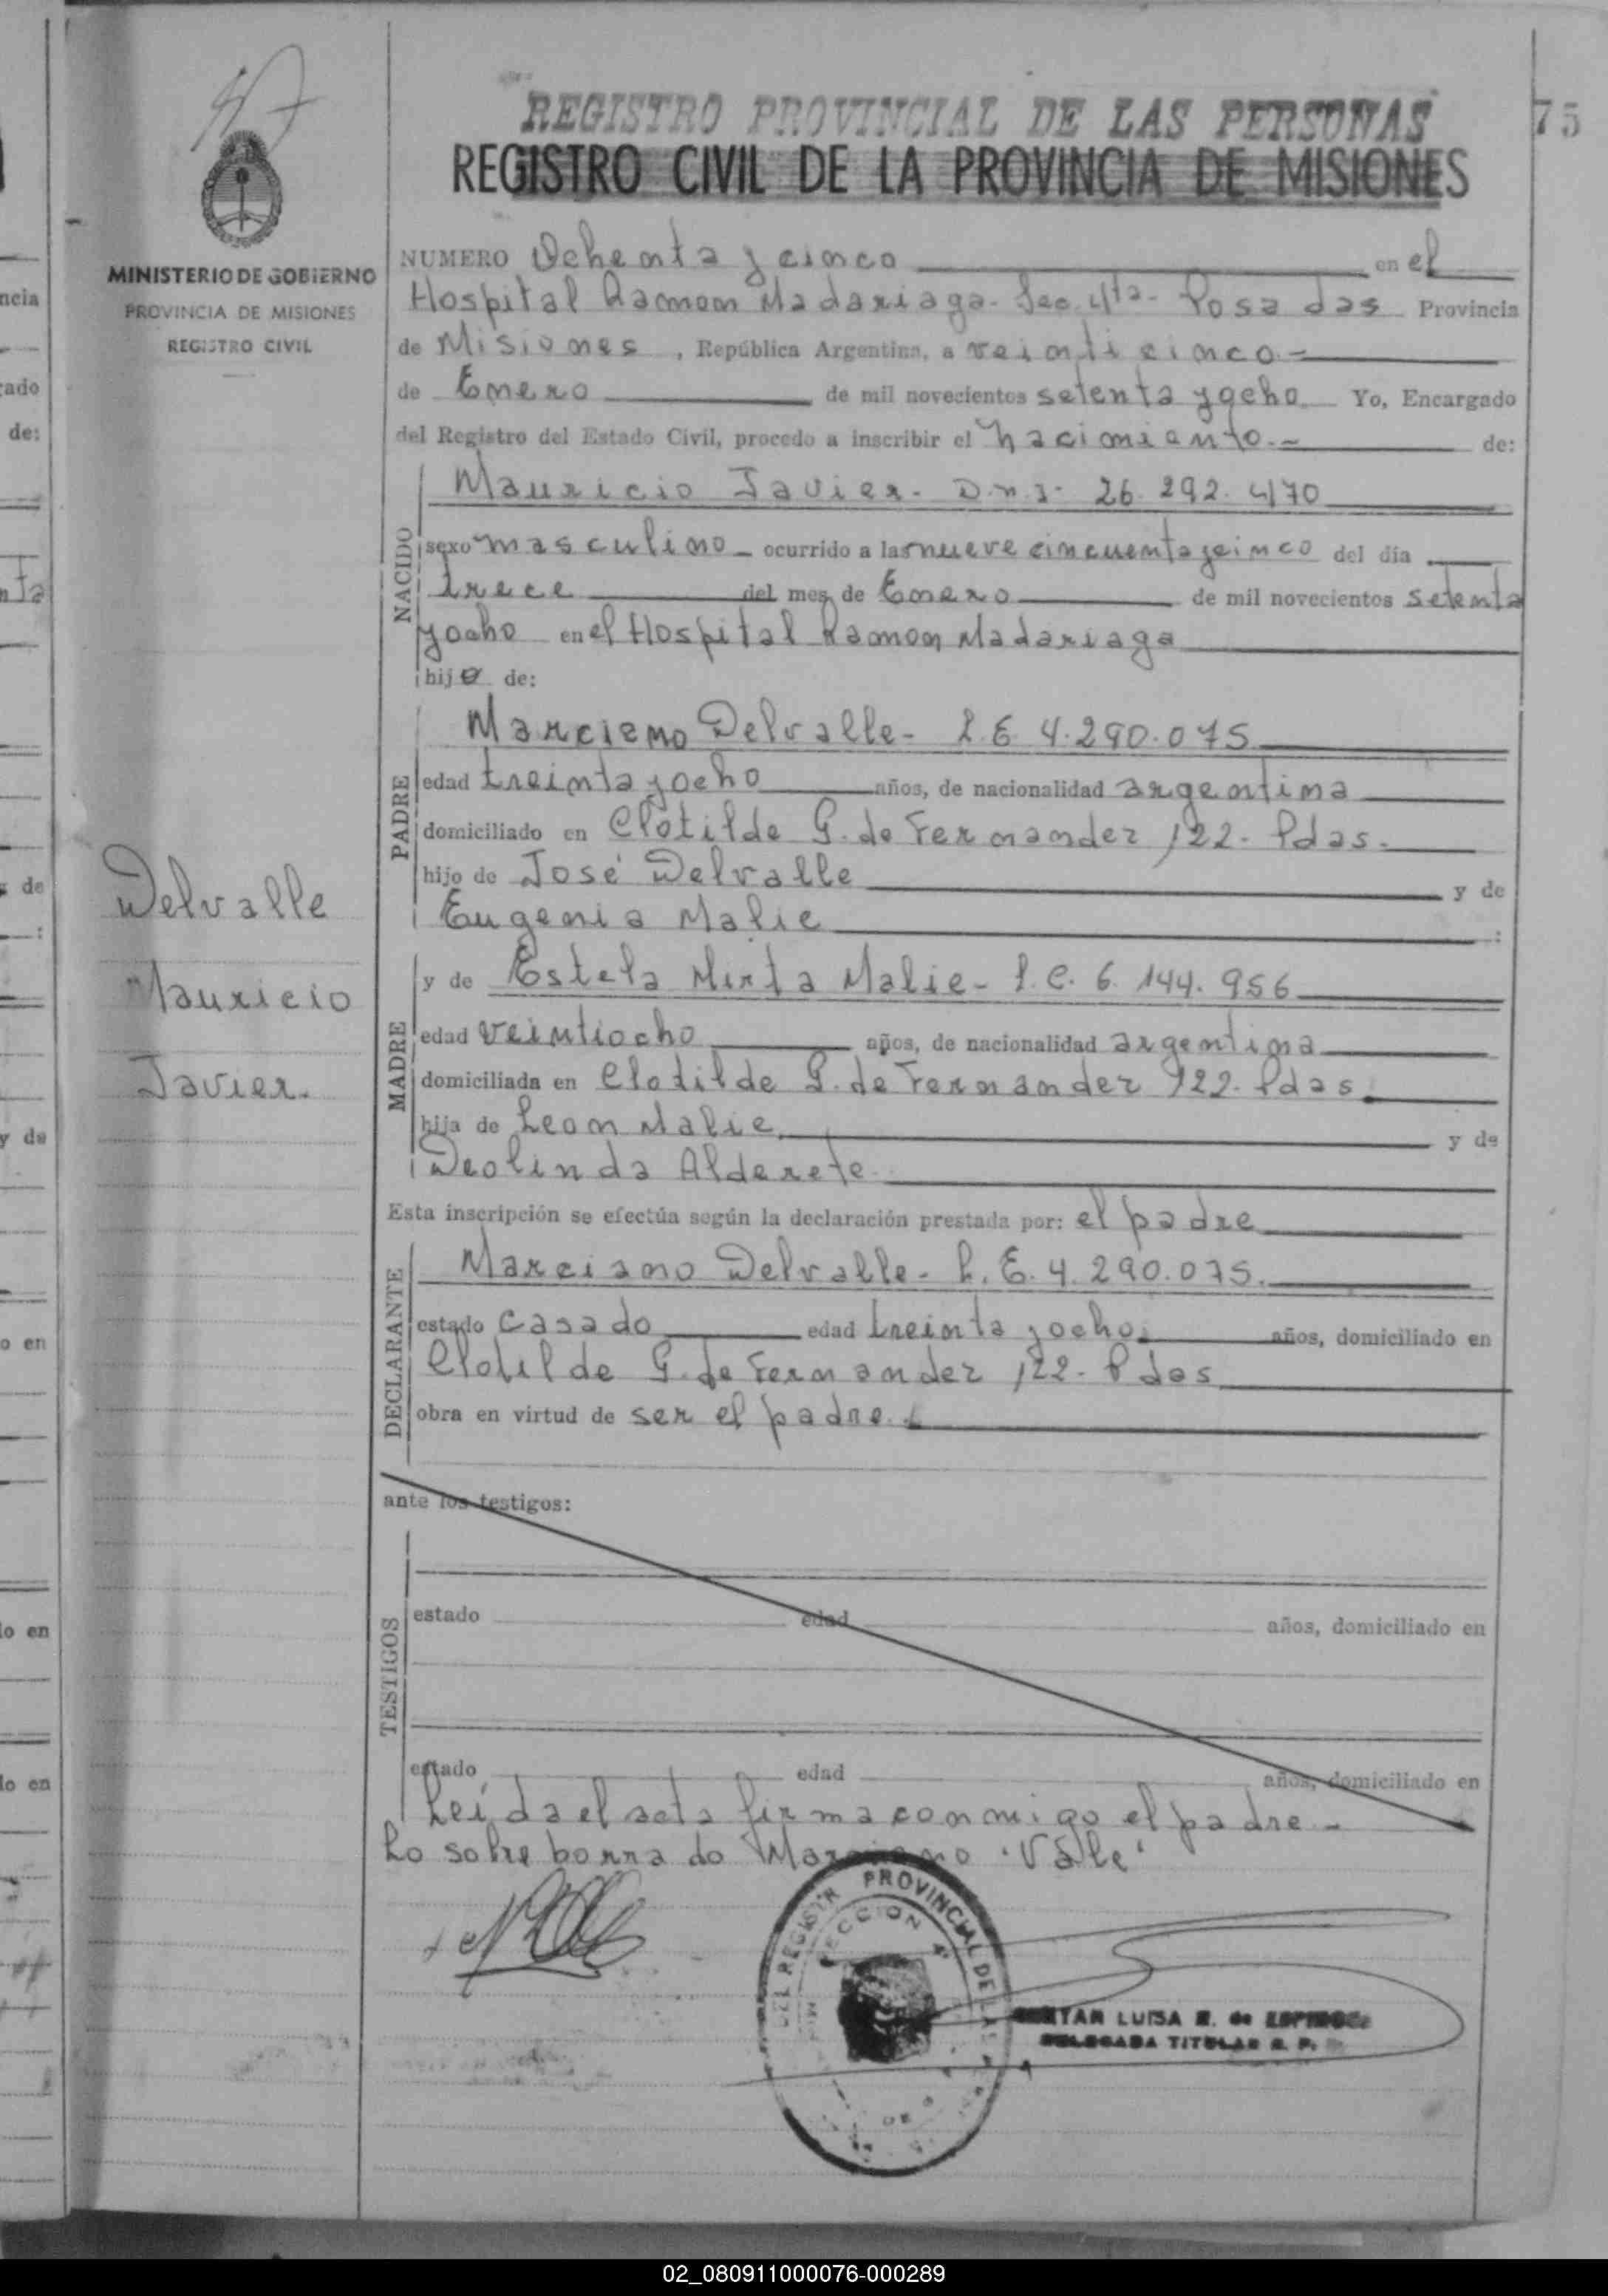 57
REGISTRO PROVINCIAL DE LAS PERSONAS
75
REGISTRO CIVIL DE LA PROVINCIA DE MISIONES
MINISTERIO DE GOBIERNO
PROVINCIA DE MISIONES
REGISTRO CIVIL
NUMERO Ochenta y cinco en el
Hospital Ramon Madariaga - Sec. 4ta - Posadas Provincia
de Misiones, República Argentina, a veinticinco.-
de Enero de mil novecientos setenta y ocho Yo, Encargado
del Registro del Estado Civil, procedo a inscribir el nacimiento.- de:
Mauricio Javier - D.n.I. 26.292.470
NACIDO
sexo masculino - ocurrido a las nueve cincuenta y cinco del día
trece del mes de Enero de mil novecientos setenta
y ocho en el Hospital Ramon Madariaga
hijo de:
Marciano Delvalle - L.E. 4.290.075
PADRE
edad treinta y ocho años, de nacionalidad argentina
domiciliado en Clotilde G. de Fernandez 122 - Pdas.
hijo de José Delvalle y de
Eugenia Malie :
y de Estela Mirta Malie - L.C. 6.144.956
MADRE
edad veintiocho años, de nacionalidad argentina
domiciliada en Clotilde G. de Fernandez 122 - Pdas.
hija de Leon Malie y de
Deolinda Alderete
Delvalle
Mauricio
Javier.
Esta inscripción se efectúa según la declaración prestada por: el padre
Marciano Delvalle - L.E. 4.290.075.
DECLARANTE
estado casado edad treinta y ocho. años, domiciliado en
Clotilde G. de Fernandez 122 - Pdas
obra en virtud de ser el padre.
ante los testigos:
TESTIGOS
estado edad años, domiciliado en
estado edad años, domiciliado en
Leída el acta firma conmigo el padre -
Lo sobre borrado Marciano "Vale"
DEL REGISTR PROVINCIAL DE LAS
SECCION 4
LUISA E. de ESPINOSA
DELEGADA TITULAR R. P.
02_080911000076-000289